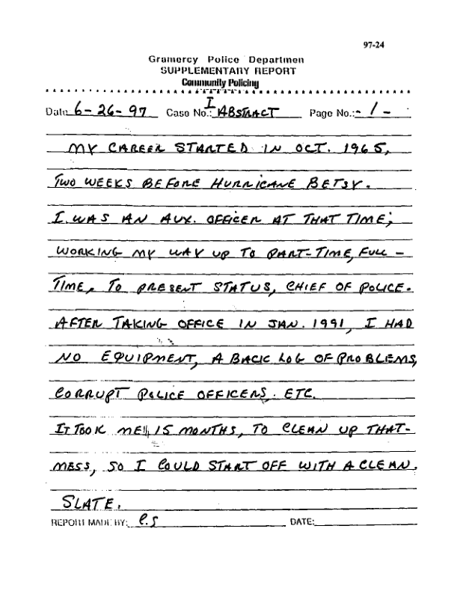 97-24
Gramercy Police Departmen
SUPPLEMENTARY REPORT
Community Policing
Date 6-26-97 Case No.: I ABSTRACT Page No.: - 1 -
MY CAREER STARTED IN OCT. 1965,
TWO WEEKS BEFORE HURRICANE BETSY.
I WAS AN AUX. OFFICER AT THAT TIME;
WORKING MY WAY UP TO PART-TIME, FULL -
TIME, TO PRESENT STATUS, CHIEF OF POLICE.
AFTER TAKING OFFICE IN JAN. 1991, I HAD
NO EQUIPMENT, A BACK LOG OF PROBLEMS,
CORRUPT POLICE OFFICERS. ETC.
IT TOOK ME 15 MONTHS, TO CLEAN UP THAT-
MESS, SO I COULD START OFF WITH A CLEAN.
SLATE.
REPORT MADE BY: P.S DATE: